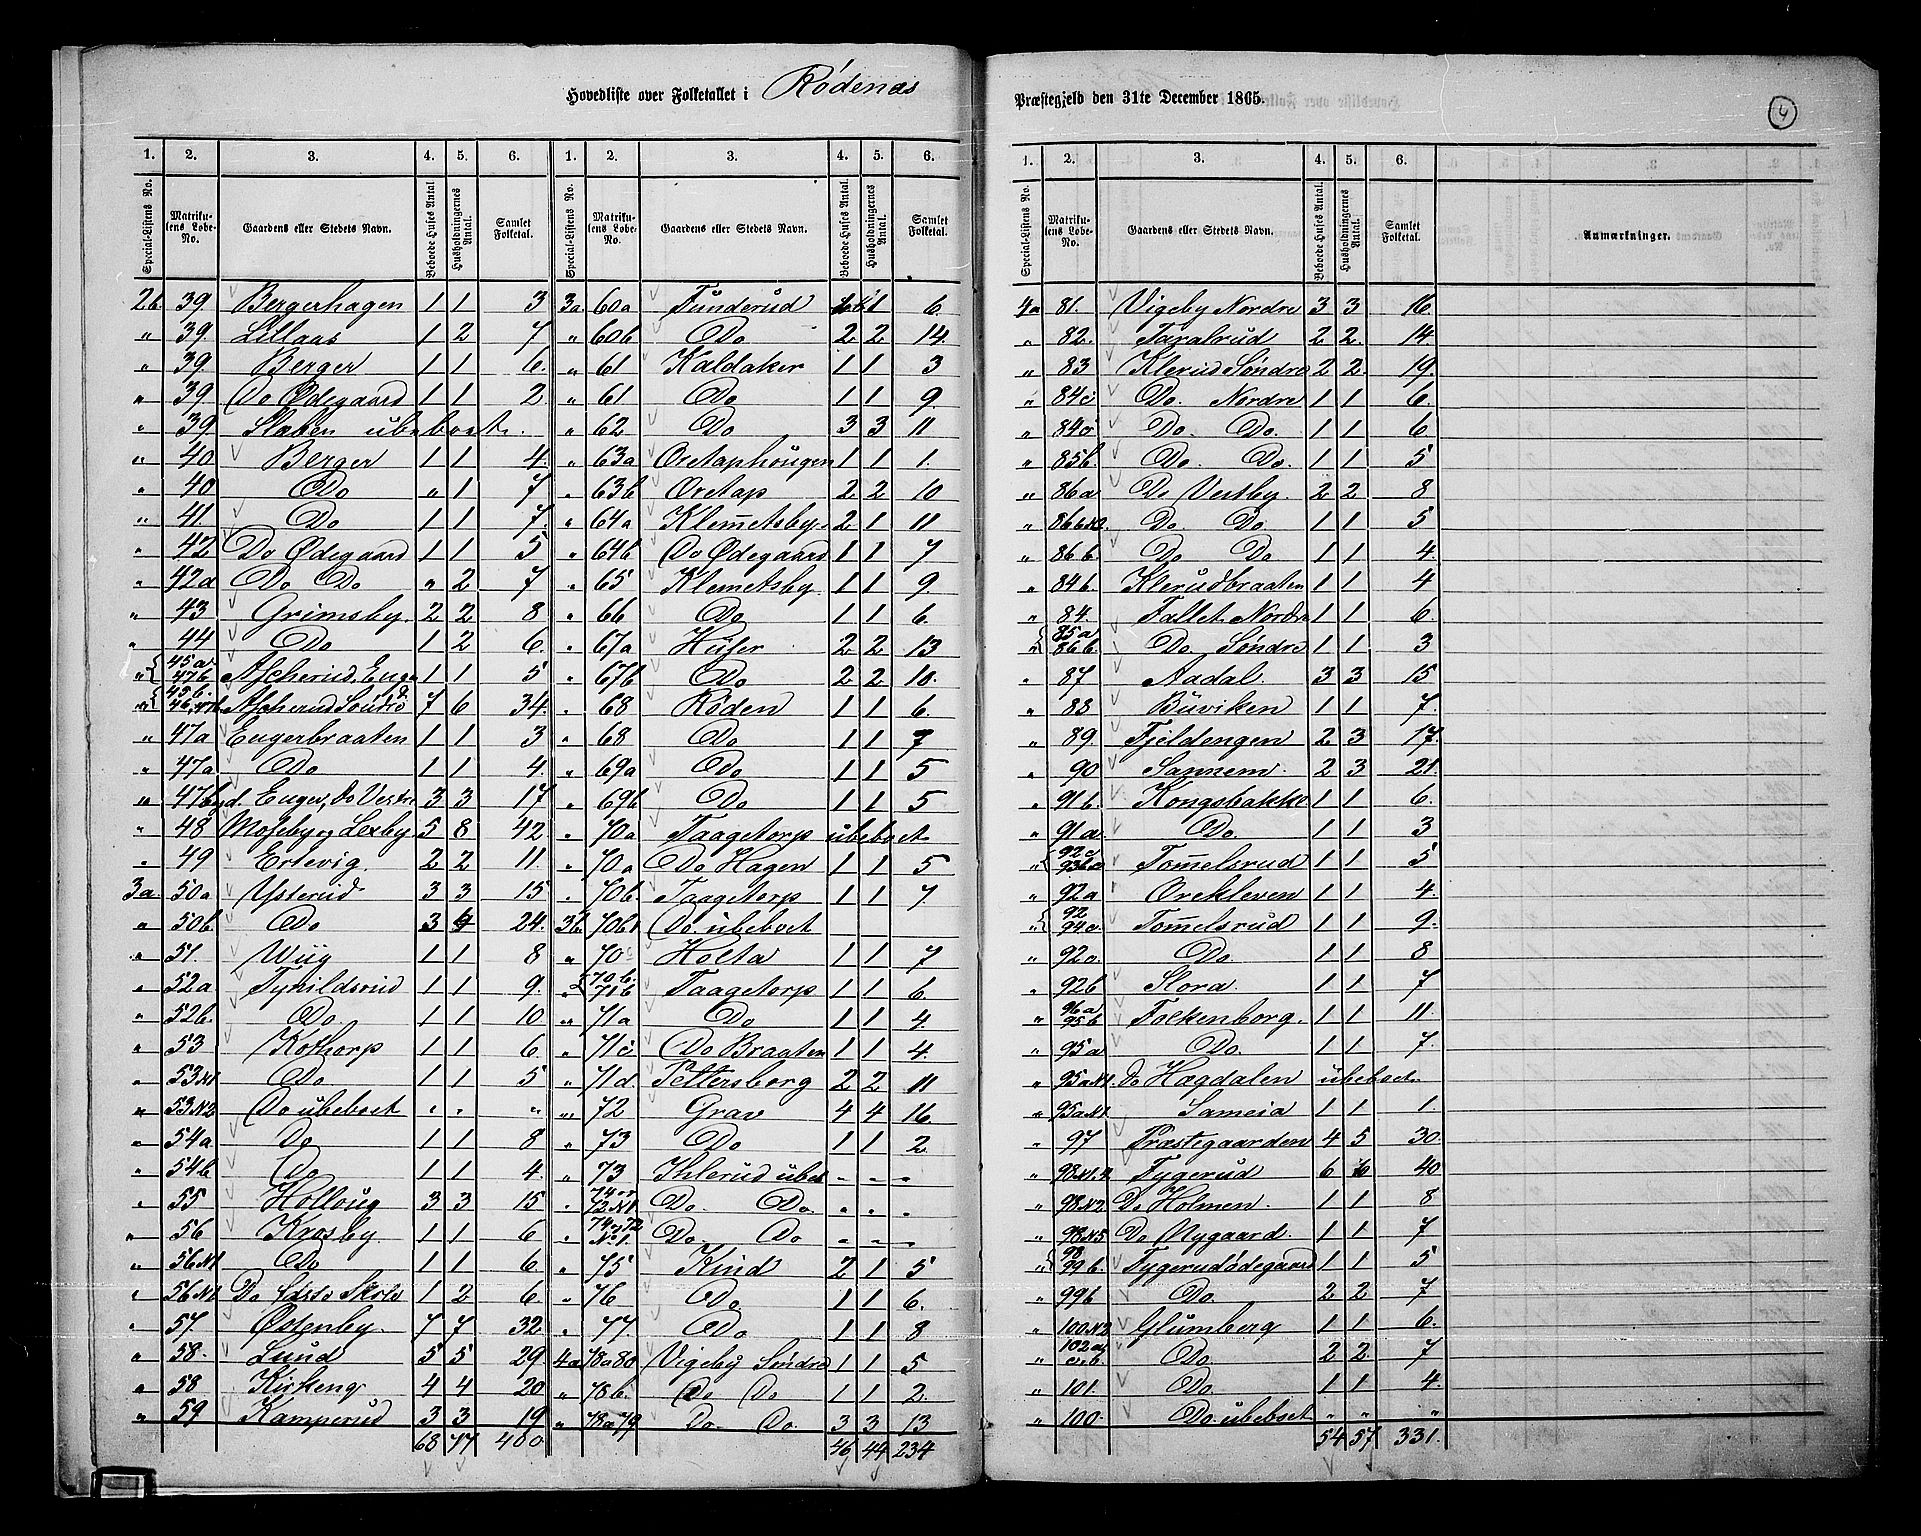 Hovedliste over Folketallet i Rödenæs Præstegjeld den 31te December 1865.
4
1. 2. 3. 4. 5. 6. 1. 2. 3. 4. 5. 6.
Special-Listens No. Matrikulens Løbe-No. Gaardens eller Stedets Navn. Beboede Huses Antal Husholdningernes Antal. Samlet Folketal. Special-Listens No. Matrikulens Løbe-No. Gaardens eller Stedets Navn. Beboede Huses Antal. Husholdningernes Antal. Samlet Folketal.
2b 39 Bergerhagen 1 1 3
" 39 Lillaas 1 2 7
" 39 Berger 1 1 6
" 39 Do Ødegaard 1 1 2
" 39 Slaben ubeboet
" 40 Berger 1 1 4
" 40 Do " 1 7
" 41 Do 1 1 7
" 42 Do Ødegaard 1 1 5
" 42a Do Do " 2 7
" 43 Grimsby 2 2 8
" 44 Do 1 2 6
" 45a 47b Ascherud, Enger 1 1 5
" 45b Ascherud Söndre 7 6 34
" 47a Engerbraaten 1 1 3
" 47a Do 1 1 4
" 47b,d. Enger, Do Vestre 3 3 17
" 48 Moseby og Lexby 5 8 42
" 49 Ertevig 2 2 11
3a 50a Ysterud 3 3 15
" 50b Do 3 4 24
" 51 Wiig 1 1 8
" 52a Tyhildsrud 1 1 9
" 52b Do 1 1 10
" 53 Kothorp 1 1 6
" 53 N1 Do 1 1 5
" 53 N2 Do ubeboet " " "
" 54a Do 1 1 8
" 54b Do 1 1 4
" 55 Holloug 3 3 15
" 56 Krosby 1 1 6
" 56 N1 Do 1 1 6
" Do 1 2 6
" 57 Østenby 7 7 32
" 58 Lund 5 5 29
" 58 Kirkeng 4 4 20
" 59 Kamperud 3 3 19
68 77 400
3a 60a Funderud 1 6
" 60b Do 2 2 14
" 61 Kaldaker 1 1 3
" 61 Do 1 1 9
" 62 Do 3 3 11
" 63a Oretaphougen 1 1 1
" 63b Oretap 2 2 10
" 64a Klemetsby 2 1 11
" 64b Do Ødegaard 1 1 7
" 65 Klemetsby 1 1 9
" 66 Do 1 1 6
" 67a Huser 2 2 13
" 67b Do 2 2 10
" 68 Röden 1 1 6
" 68 Do 1 1 7
" 69a Do 1 1 5
" 69b Do 1 1 5
" 70a Taagetorp ubeboet
" 70a Do Hagen 1 1 5
" 70b Taagetorp 1 1 7
3b 70b1 Do ubeboet
" 70c Holta 1 1 7
" 70b 71b Taagetorp 1 1 6
" 71a Do 1 1 4
" 71c Do Braaten 1 1 4
" 71d Pettersborg 2 2 11
" 72 Grav 4 4 16
" 73 Do 1 1 2
" 73 Ihlerud ubet " " "
74 og 72 N1 Do Do " " "
74 og 72 No 1. Do Do " " "
" 75 Kind 2 1 5
" 76 Do 1 1 6
" 77 Do 1 1 8
4a 78a 80 Vigeby Söndre 1 1 5
" 78b Do Do 1 1 2
" 78a 79 Do Do 3 3 13
46 44 234
1. 2. 3. 4. 5. 6.
Special-Listens No. Matrikulens Løbe-No. Gaardens eller Stedets Navn. Beboede Huses Antal. Husholdningernes Antal. Samlet Folketal. Anmærkninger.
4a 81 Vigeby Nordre 3 3 16
" 82 Taralrud 2 2 14
" 83 Klerud Søndre 2 2 19
" 84c Do Nordre 1 1 6
" 84 Do Do 1 1 6
" 85b Do Do 1 1 5
" 86a Do Vestby 2 2 8
" 86b N2 Do Do 1 1 5
" 86b Do Do 1 1 4
" 84b Klerudbraaten 1 1 4
" 84 Fallet Nordre 1 1 6
" 85a 86b Do Søndre 1 1 3
" 87 Aadal 3 3 15
" 88 Buviken 1 1 7
" 89 Fjeldengen 2 3 17
" 90 Sannem 2 3 21
" 91b Kongsbakke 1 1 6
" 91a Do 1 1 3
" 92c Tomelsrud 1 1 5
" 92a Orekleven 1 1 4
" 92 94a Tomelsrud 1 1 9
" 92 Do 1 1 8
" 92b Slora 1 1 7
" 96a 95b Folkenborg 1 1 11
" 95a Do 1 1 7
" 95a N1 Do Hægdalen ubeboet
" 95a N1 Sameia 1 1 1
" 97 Præstegaarden 4 5 30
" 98 N1.4 Tygerud 6 40
" 98 N2 Do Holmen 1 1 8
" 98 N5 Do Nygaard 1 1 7
" 98 99b Tygerudødegaard 1 1 5
" 99b Do 2 2 7
" 100 N2 Glumberg 1 1 6
" 102a Do 2 2 7
" 101 Do 1 1 4
" 100 Do ubeboet " " "
54 57 331